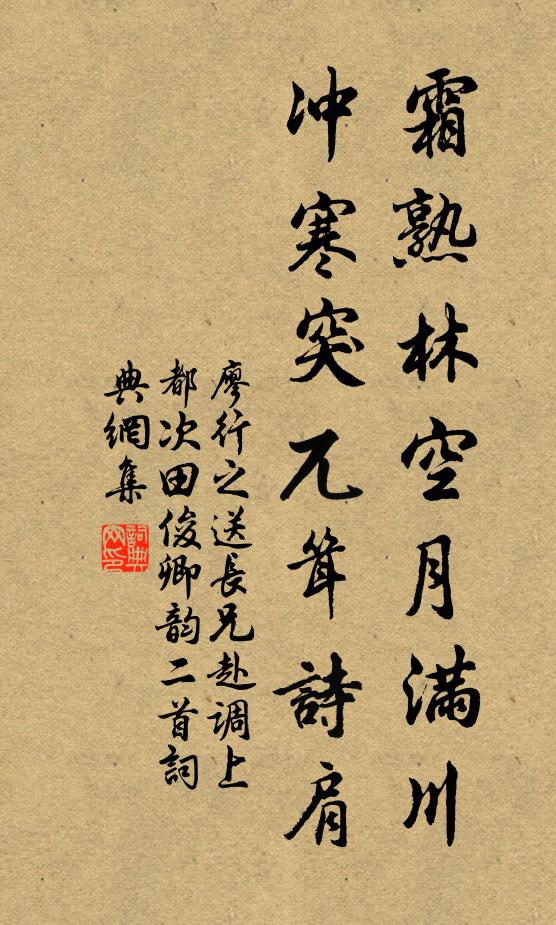 霜熟林空月满川
冲寒突兀耸詩肩
廖行之送長兄赴调上
都次田俊卿韵二首詞
典網集
詞典网印